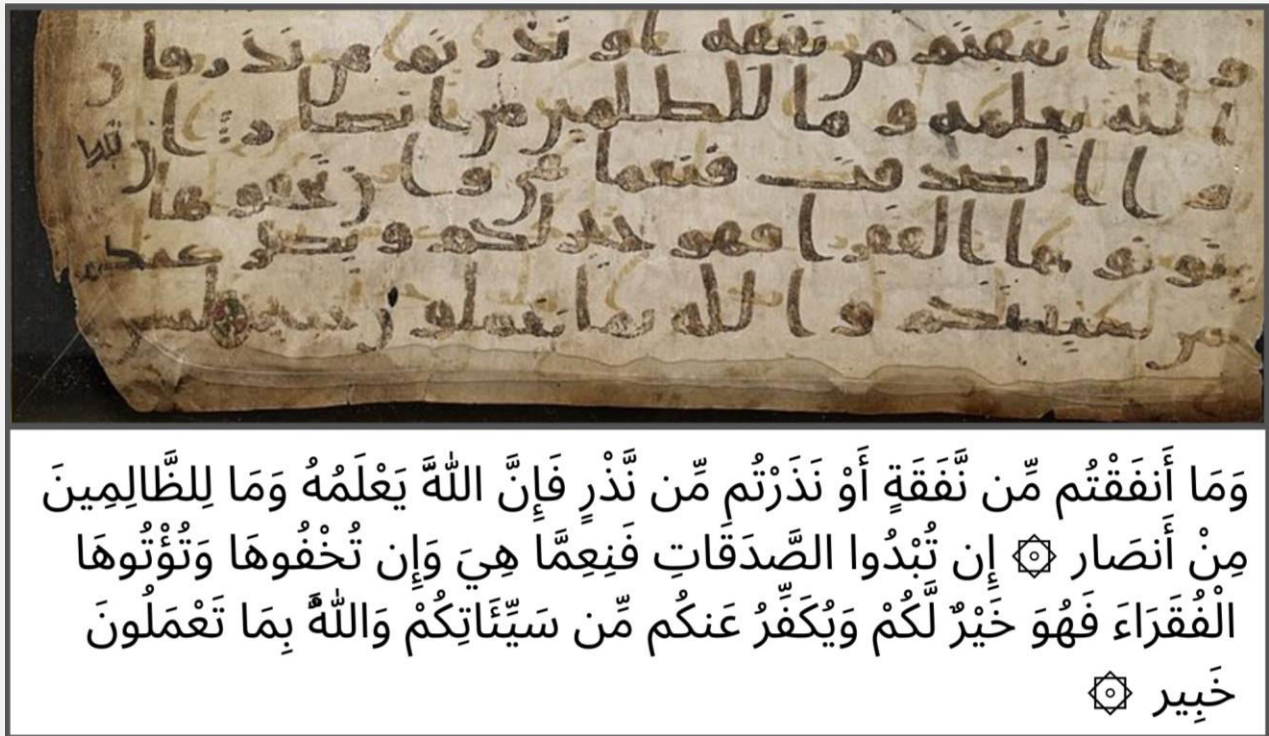 وما انفقتم من نفقه او نذرتم من نذر فان
الله يعلمه وما للظلمين من انصار ان تبد
وا الصدقت فنعما هي وان تخفوها و
توتوها الفقرا فهو خير لكم ويكفر عنكم
من سيتكم والله بما تعملون خبير
وَمَا أَنفَقْتُم مِّن نَّفَقَةٍ أَوْ نَذَرْتُم مِّن نَّذْرٍ فَإِنَّ اللَّهَ يَعْلَمُهُ وَمَا لِلظَّالِمِينَ
مِنْ أَنصَار ۞ إِن تُبْدُوا الصَّدَقَاتِ فَنِعِمَّا هِيَ وَإِن تُخْفُوهَا وَتُؤْتُوهَا
الْفُقَرَاءَ فَهُوَ خَيْرٌ لَّكُمْ وَيُكَفِّرُ عَنكُم مِّن سَيِّئَاتِكُمْ وَاللَّهُ بِمَا تَعْمَلُونَ
خَبِير ۞